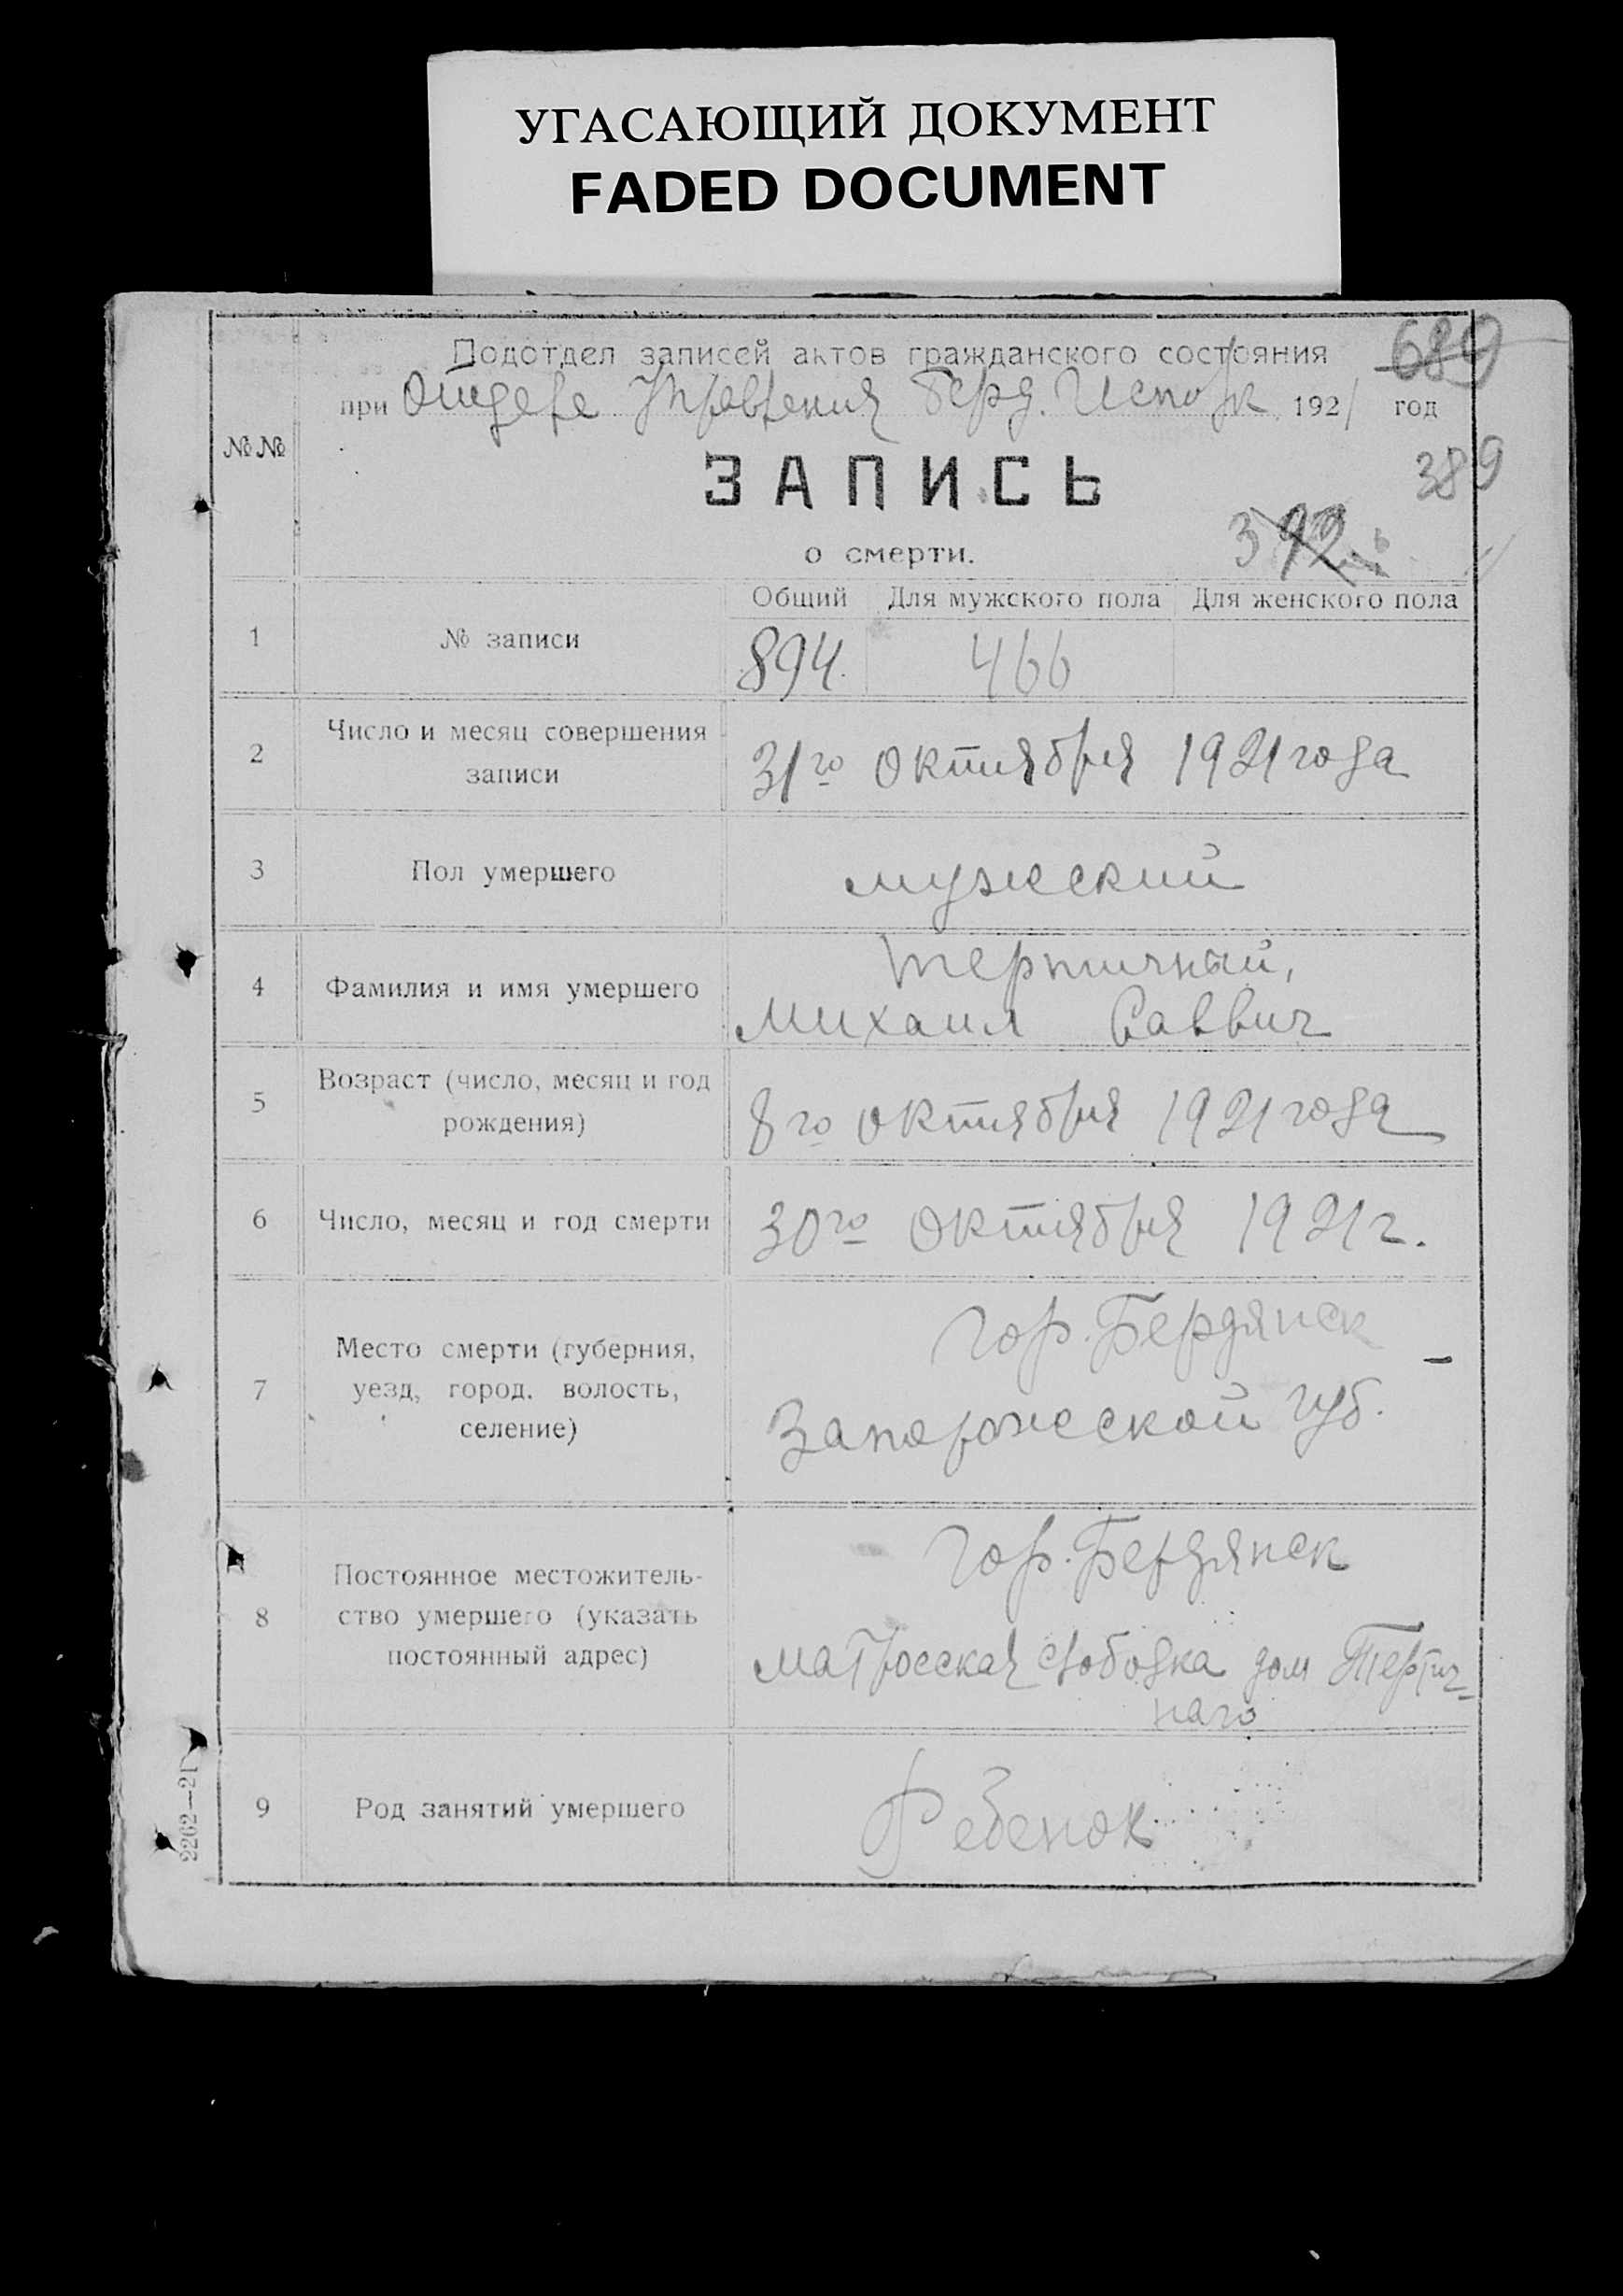 УГАСАЮЩИЙ ДОКУМЕНТ
FADED DOCUMENT
Подотдел записей актов гражданского состояния 689
при Отделе Управления Берд. Исполк 1921 год
№№
ЗАПИСЬ 389
о смерти. 392
Общий Для мужского пола Для женского пола
1 № записи 894. 466
2 Число и месяц совершения
записи
31го октября 1921 года
3 Пол умершего мужеский
4 Фамилия и имя умершего Терпичный,
Михаил Саввич
5 Возраст (число, месяц и год
рождения)
8го октября 1921 года
6 Число, месяц и год смерти 30го октября 1921 г.
7 Место смерти (губерния,
уезд, город, волость,
селение)
Гор. Бердянск
Запорожеской губ.
8 Постоянное местожитель-
ство умершего (указать
постоянный адрес)
Гор. Бердянск
матросская слободка дом Терпич-
наго
9 Род занятий умершего Ребенок
2262—21